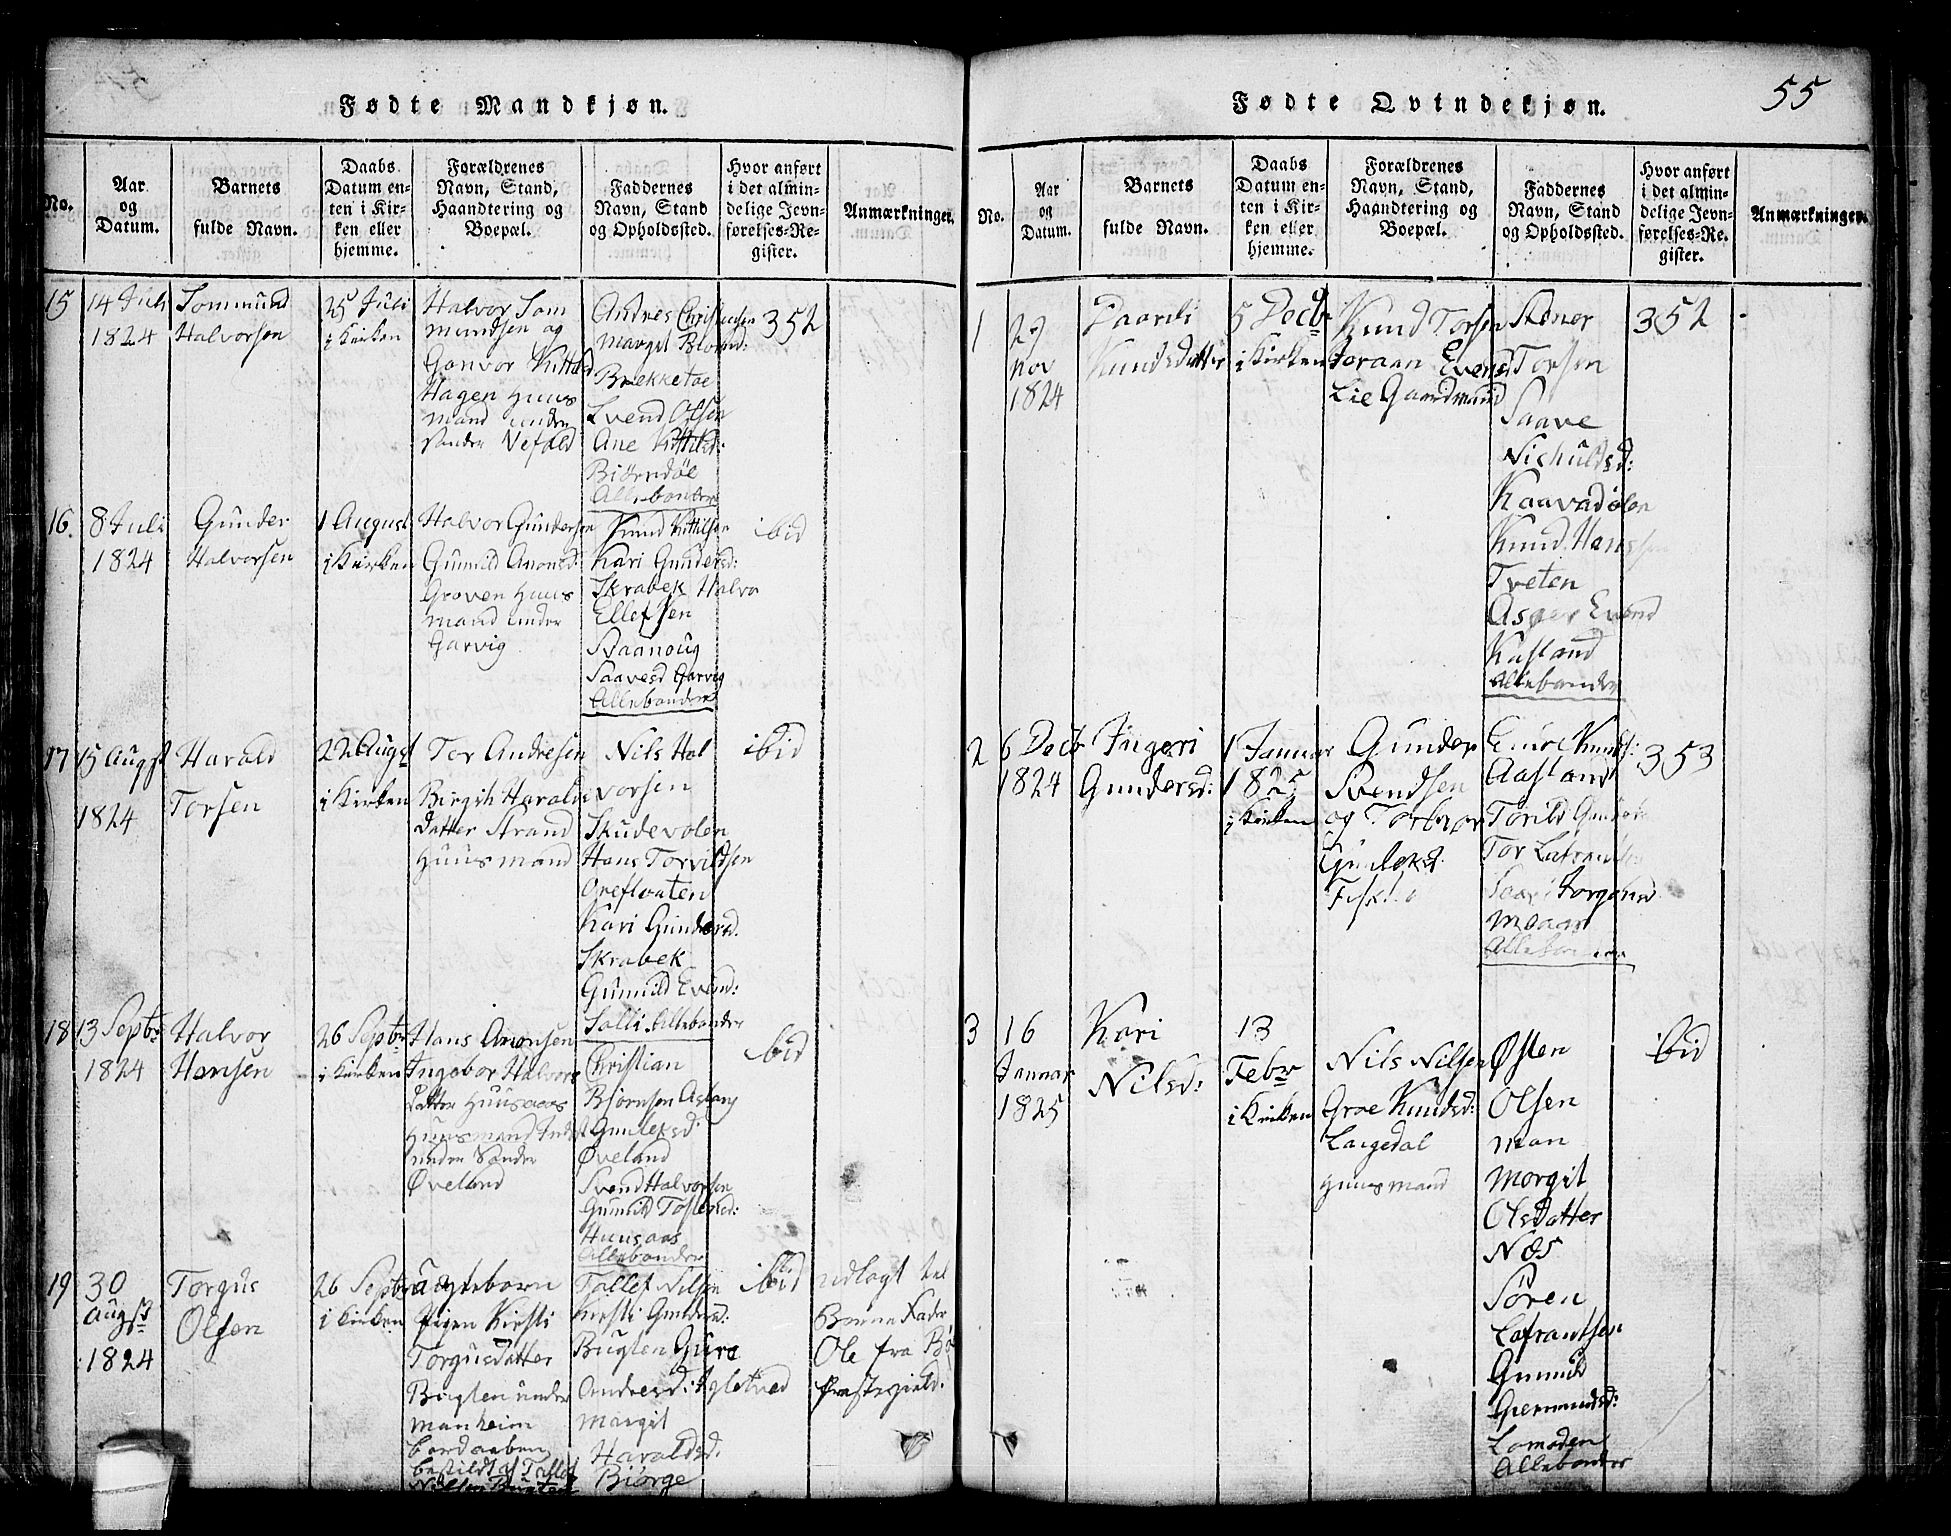 55
Fødte Mandkjøn.
No.
Aar
og
Datum.
Barnets
fulde Navn.
Daabs
Datum en-
ten i Kir-
ken eller
hjemme.
Forældrenes
Navn, Stand,
Haandtering og
Boepæl.
Faddernes
Navn, Stand
og Opholdssted.
Hvor anført
i det almin-
delige Jevn-
førelses-Re-
gister.
Anmærkninger.
15
14 Juli
1824
Sommund
Halvorsen
25 Juli
i Kirken
Halvor Som
mundsen og
Gonvor Kittilsd
Hagen Huus
mand under
Søndre Nefald
Andres Christensen
Margit
Brekketoe
Svend Olsen
Ane Kittilsd:
Biørndøl
Allebønder
352
16.
8 Juli
1824
Gunder
Halvorsen
1 August
i Kirken
Halvor Gundersen
Gunnild Anonsd:
Groven Huus
mand under
Garvig
Knud Kittilsen
Kari Gundersd:
Skrabek Halvo
Ellefsen
Staanoug
Saavesd Garvig
Allebønder
ibid
17
15 Augst
1824
Harald
Torsen
22 Augst
i Kirken
Tor Andresen
Birgith Haralds
datter Strand
Huusmand
Nils Hal
vorsen
Skudevolen
Hans Torvildsen
Orefloaten
Kari Gundersd.
Skrabek
Gunnild Evend:
Solli. Allebønder
ibid
18
13 Septbr
1824
Halvor
Hansen
26 Septbr
i Kirken
Hans Anonsen
Ingebor Halvors
datter Huusaas
Huusmand
under Søndre
Øveland
Christian
Bjørnsen Aslaug
Gunleksd:
Øveland
Svend Halvorsen
Gunnild Tostensd:
Huusaas
Allebønder
ibid
19
30
Augst
1824
Torgus
Olsen
26 Septbr
i Kirken
Uægteborn
Pigen Kirsti
Torgusdatter
Bugten under
Manheim
bestildt af Tallef
Nilsen Bugten
Tallef Nilsen
Kirsti Gundersd:
Bugten Guro
Andresd:
Margit
Haraldsd.
Biørge
ibid
udlagt til
Barne Fader
Ole fra Bø
Præstegield.
Fødte Qvindekjøn.
No.
Aar
og
Datum.
Barnets
fulde Navn.
Daabs
Datum en-
ten i Kir-
ken eller
hjemme.
Forældrenes
Navn, Stand,
Haandtering og
Boepæl.
Faddernes
Navn, Stand
og Opholdssted.
Hvor anført
i det almin-
delige Jevn-
førelses-Re-
gister.
Anmærkninger.
1
29
Nov
1824
Paardi
Knudsdatter
5 Decbr
i Kirken
Knud Torsen
Joraan Evensd
Lie Gaardmand
Stener
Torsen
Saave
Nichuldsd:
Kaavadølen
Knud Hansen
Tveten
Evend
Kasland
Allebønder
352
2
6 Decb
1824
Ingeri
Gundersd:
1 Januar
1825
i Kirken
Gunder
Svendsen
og Torbør
Gunleksd
Knuts:
Aasland
Torild
Tor Lafrandsen
Moaas
353
3
16
Januar
1825
Kari
Nilsd:
13
Febr
i Kirken
Nils Nilsen
Groe Knudsd:
Langedal
Huusmand
Østen
Olsen
Moan
Morgit
Olsdatter
Nøs
Søren
Lafrantsen
Gunnild
Giermundsd:
Lomoden
Allebønder
ibid